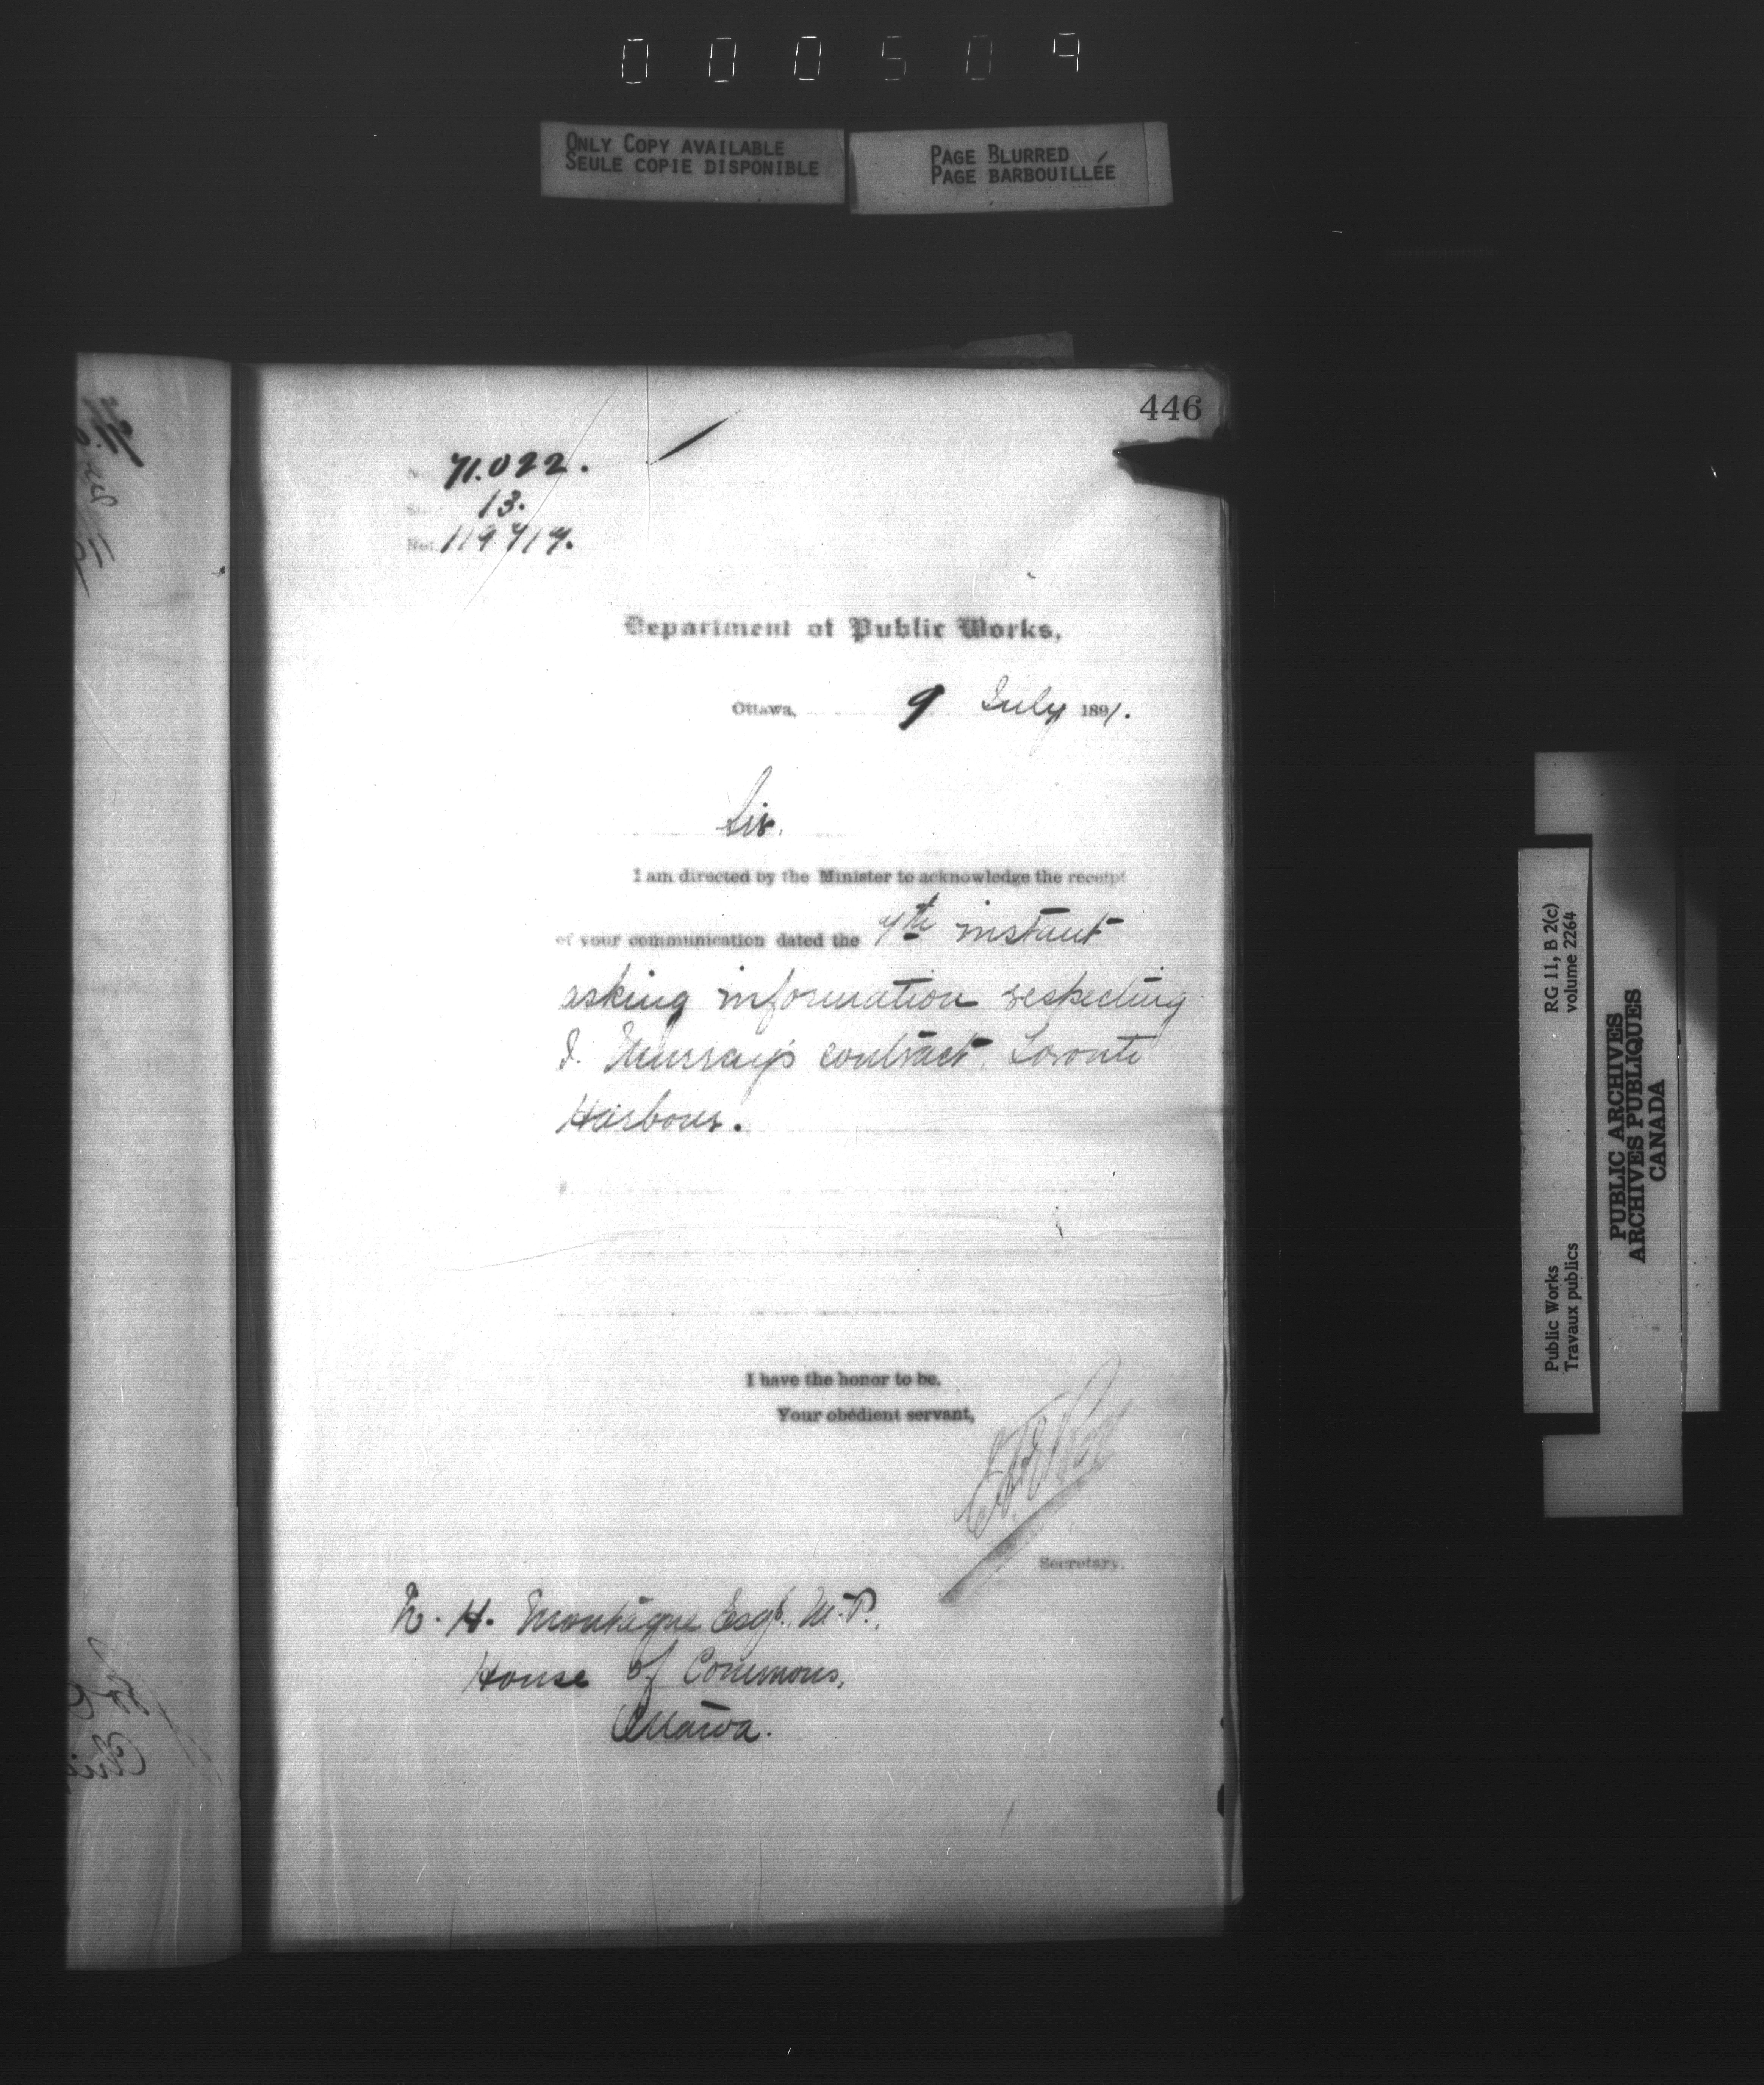 000509
ONLY COPY AVAILABLE
SEULE COPIE DISPONIBLE
PAGE BLURRED
PAGE BARBOUILLÉE
446
71.022.
13.
119717.
Department of Public Works,
Ottawa, 9 July 1891.
Sir.
I am directed by the Minister to acknowledge the receipt
of your communication dated the 7th instant
asking information respecting
Murray's contract. Toronto
Harbour.
I have the honor to be,
Your obedient servant,
Secretary.
H. Montague Esq. M.P.,
House of Commons,
Ottawa.
RG 11, B 2(c)
volume 2264
Public Works
Travaux publics
PUBLIC ARCHIVES
ARCHIVES PUBLIQUES
CANADA